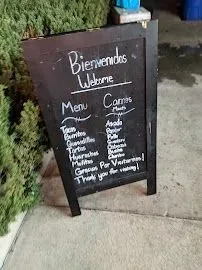 Bienvenidos
Welcome
Menu
Tacos
Burritos
Quesadillas
Tortas
Huaraches
Mulitas
Carnes
Meats
Asada
Pastor
Pollo
Cabeza
Buche
Chorizo
Gracias Por Visitarnos!
Thank you for visiting!